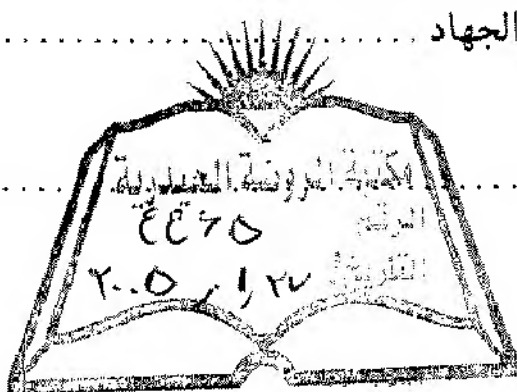 الجهاد ........................
مكتبة الروضة الحيدرية
الرقم
التاريخ ٢٠٠٥,١,٢٧